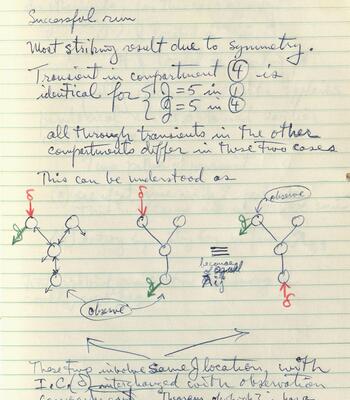 Successful run
Most striking result due to symmetry.
Transient in compartment ④ is
identical for { J = 5 in ①
{ J = 5 in ④
all through transients in the other
compartments differ in these two cases
This can be understood as
δ δ observe
g g
g ≡
because
of equal
observe δ
These two involve same J location, with
I.C.s interchanged with observation